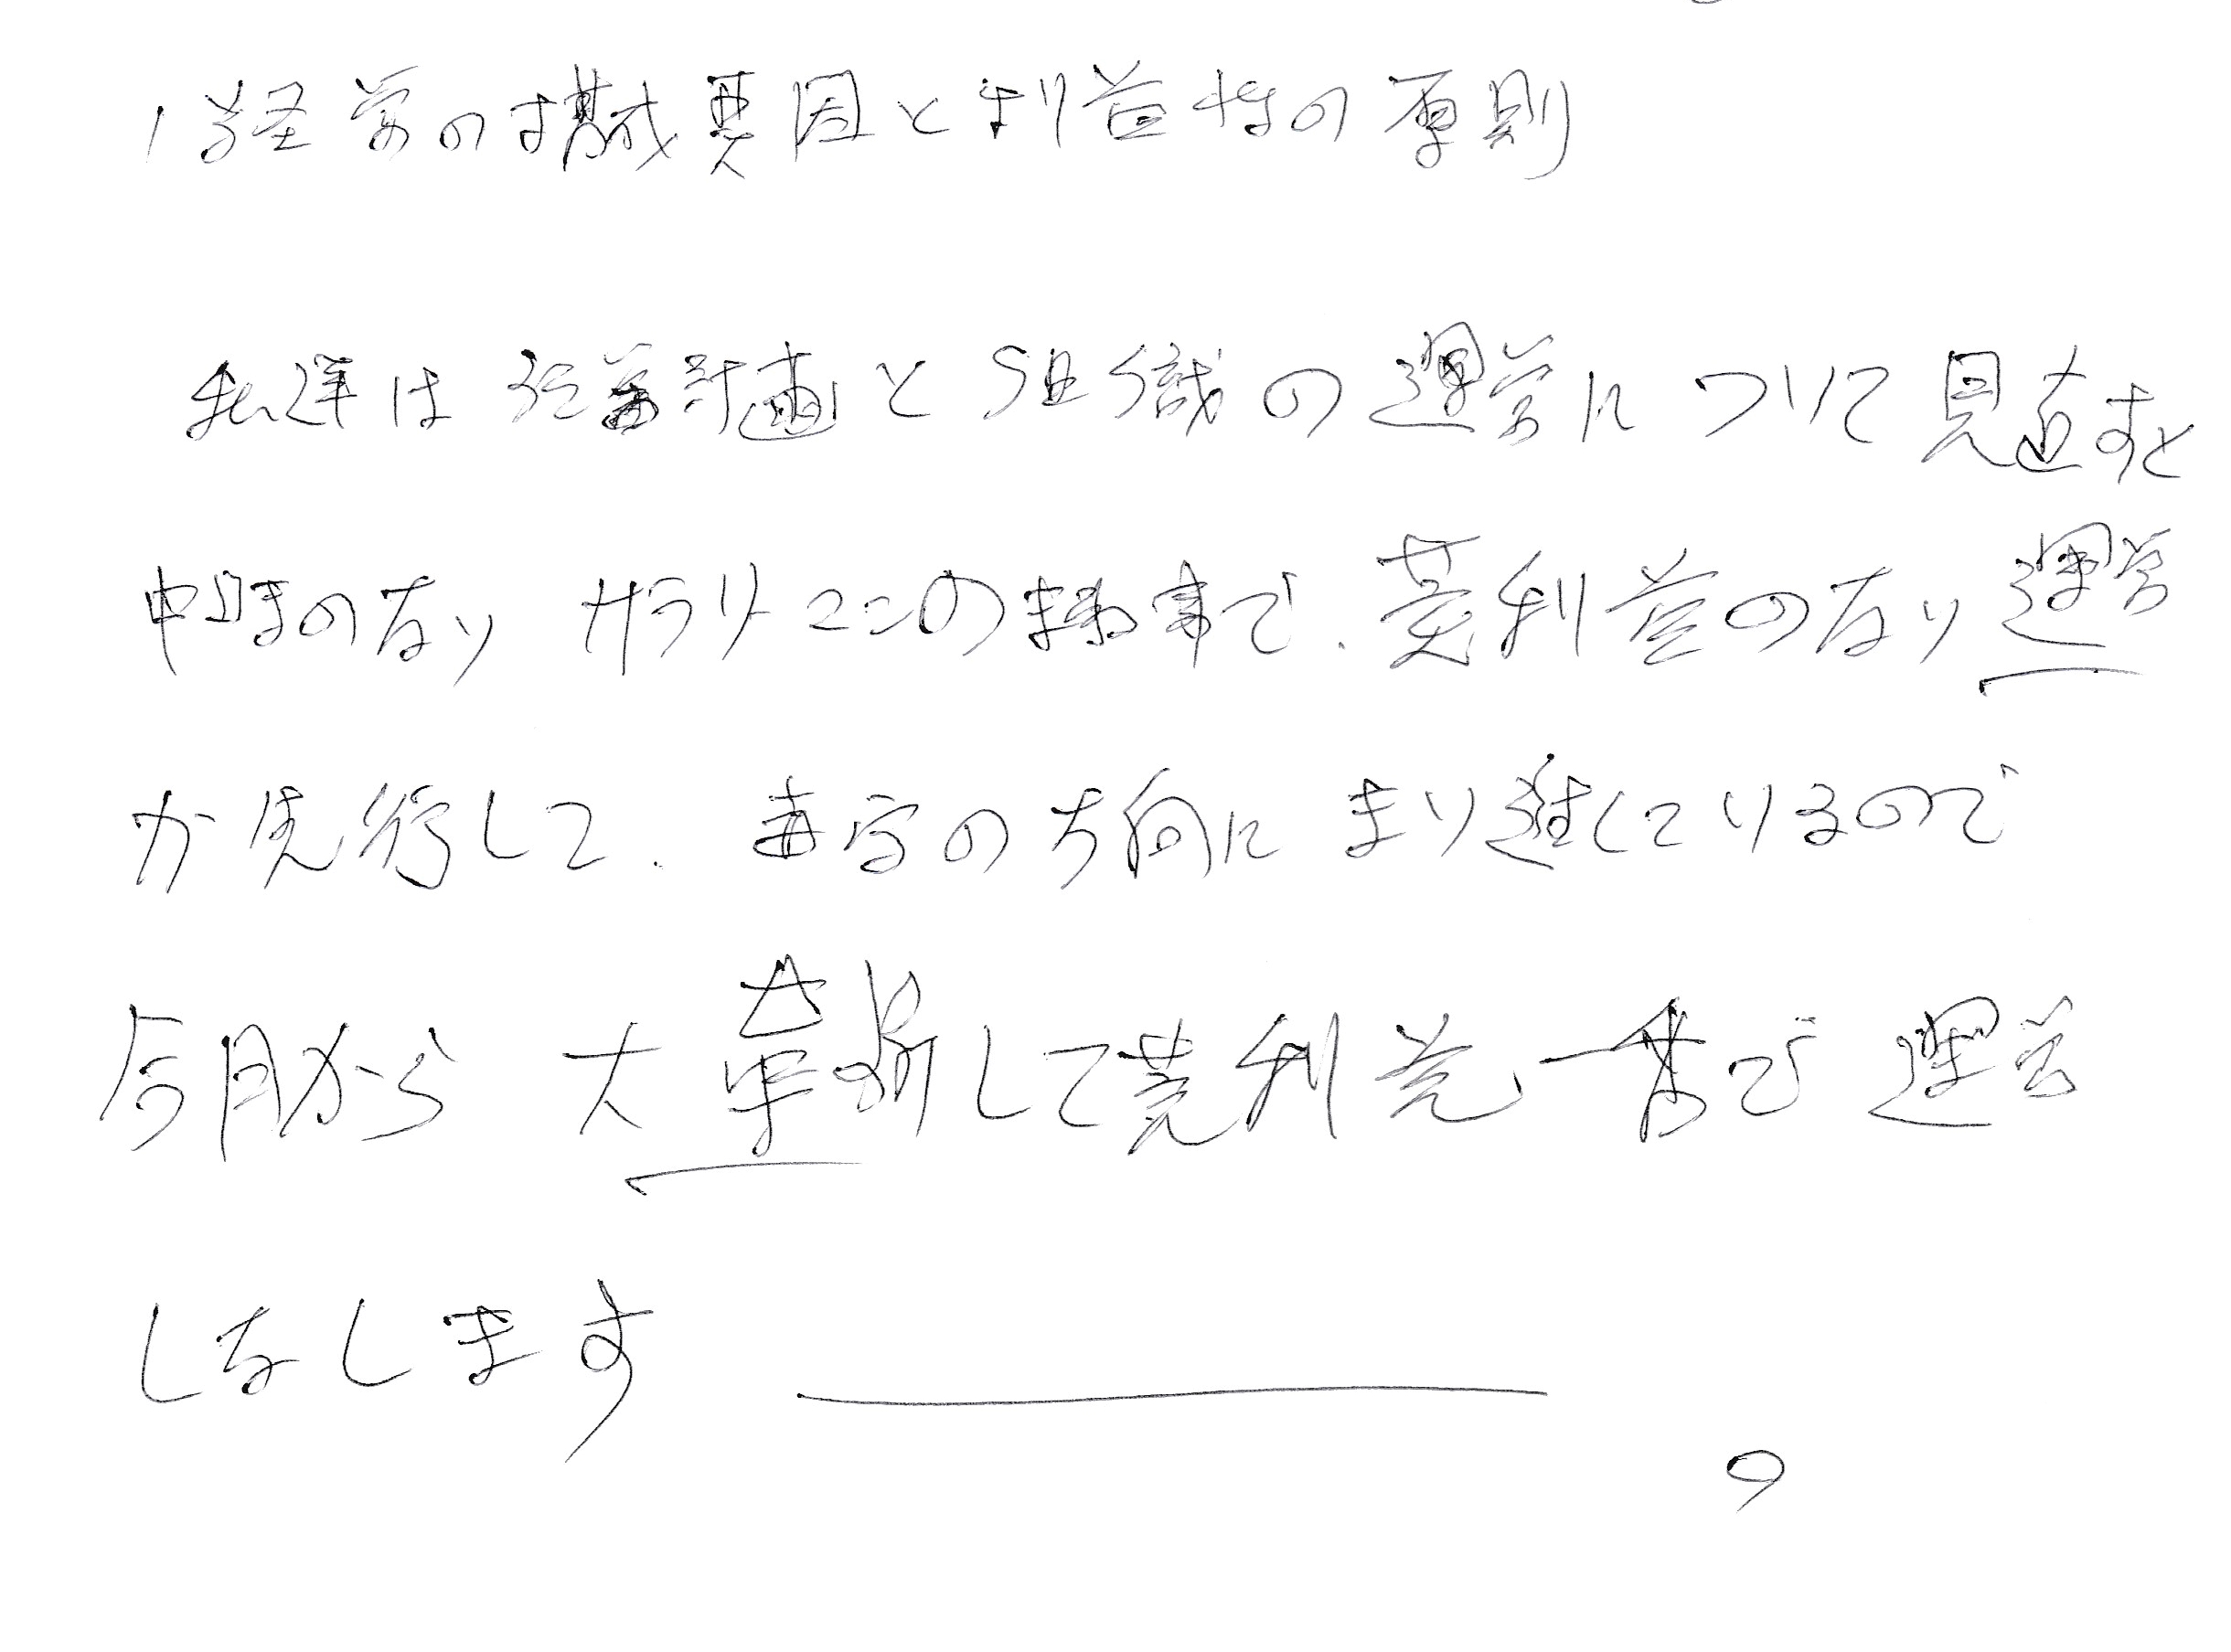 1 経営の構成要因と利益性の原則
私達は経営計画と組織の運営について見直すと
中味のない サラリーマンの 事で、荒利益のない運営
が先行して、赤字の方向に まい進しているので
今月から 大革新して荒利益一本で 運営
しなします
9